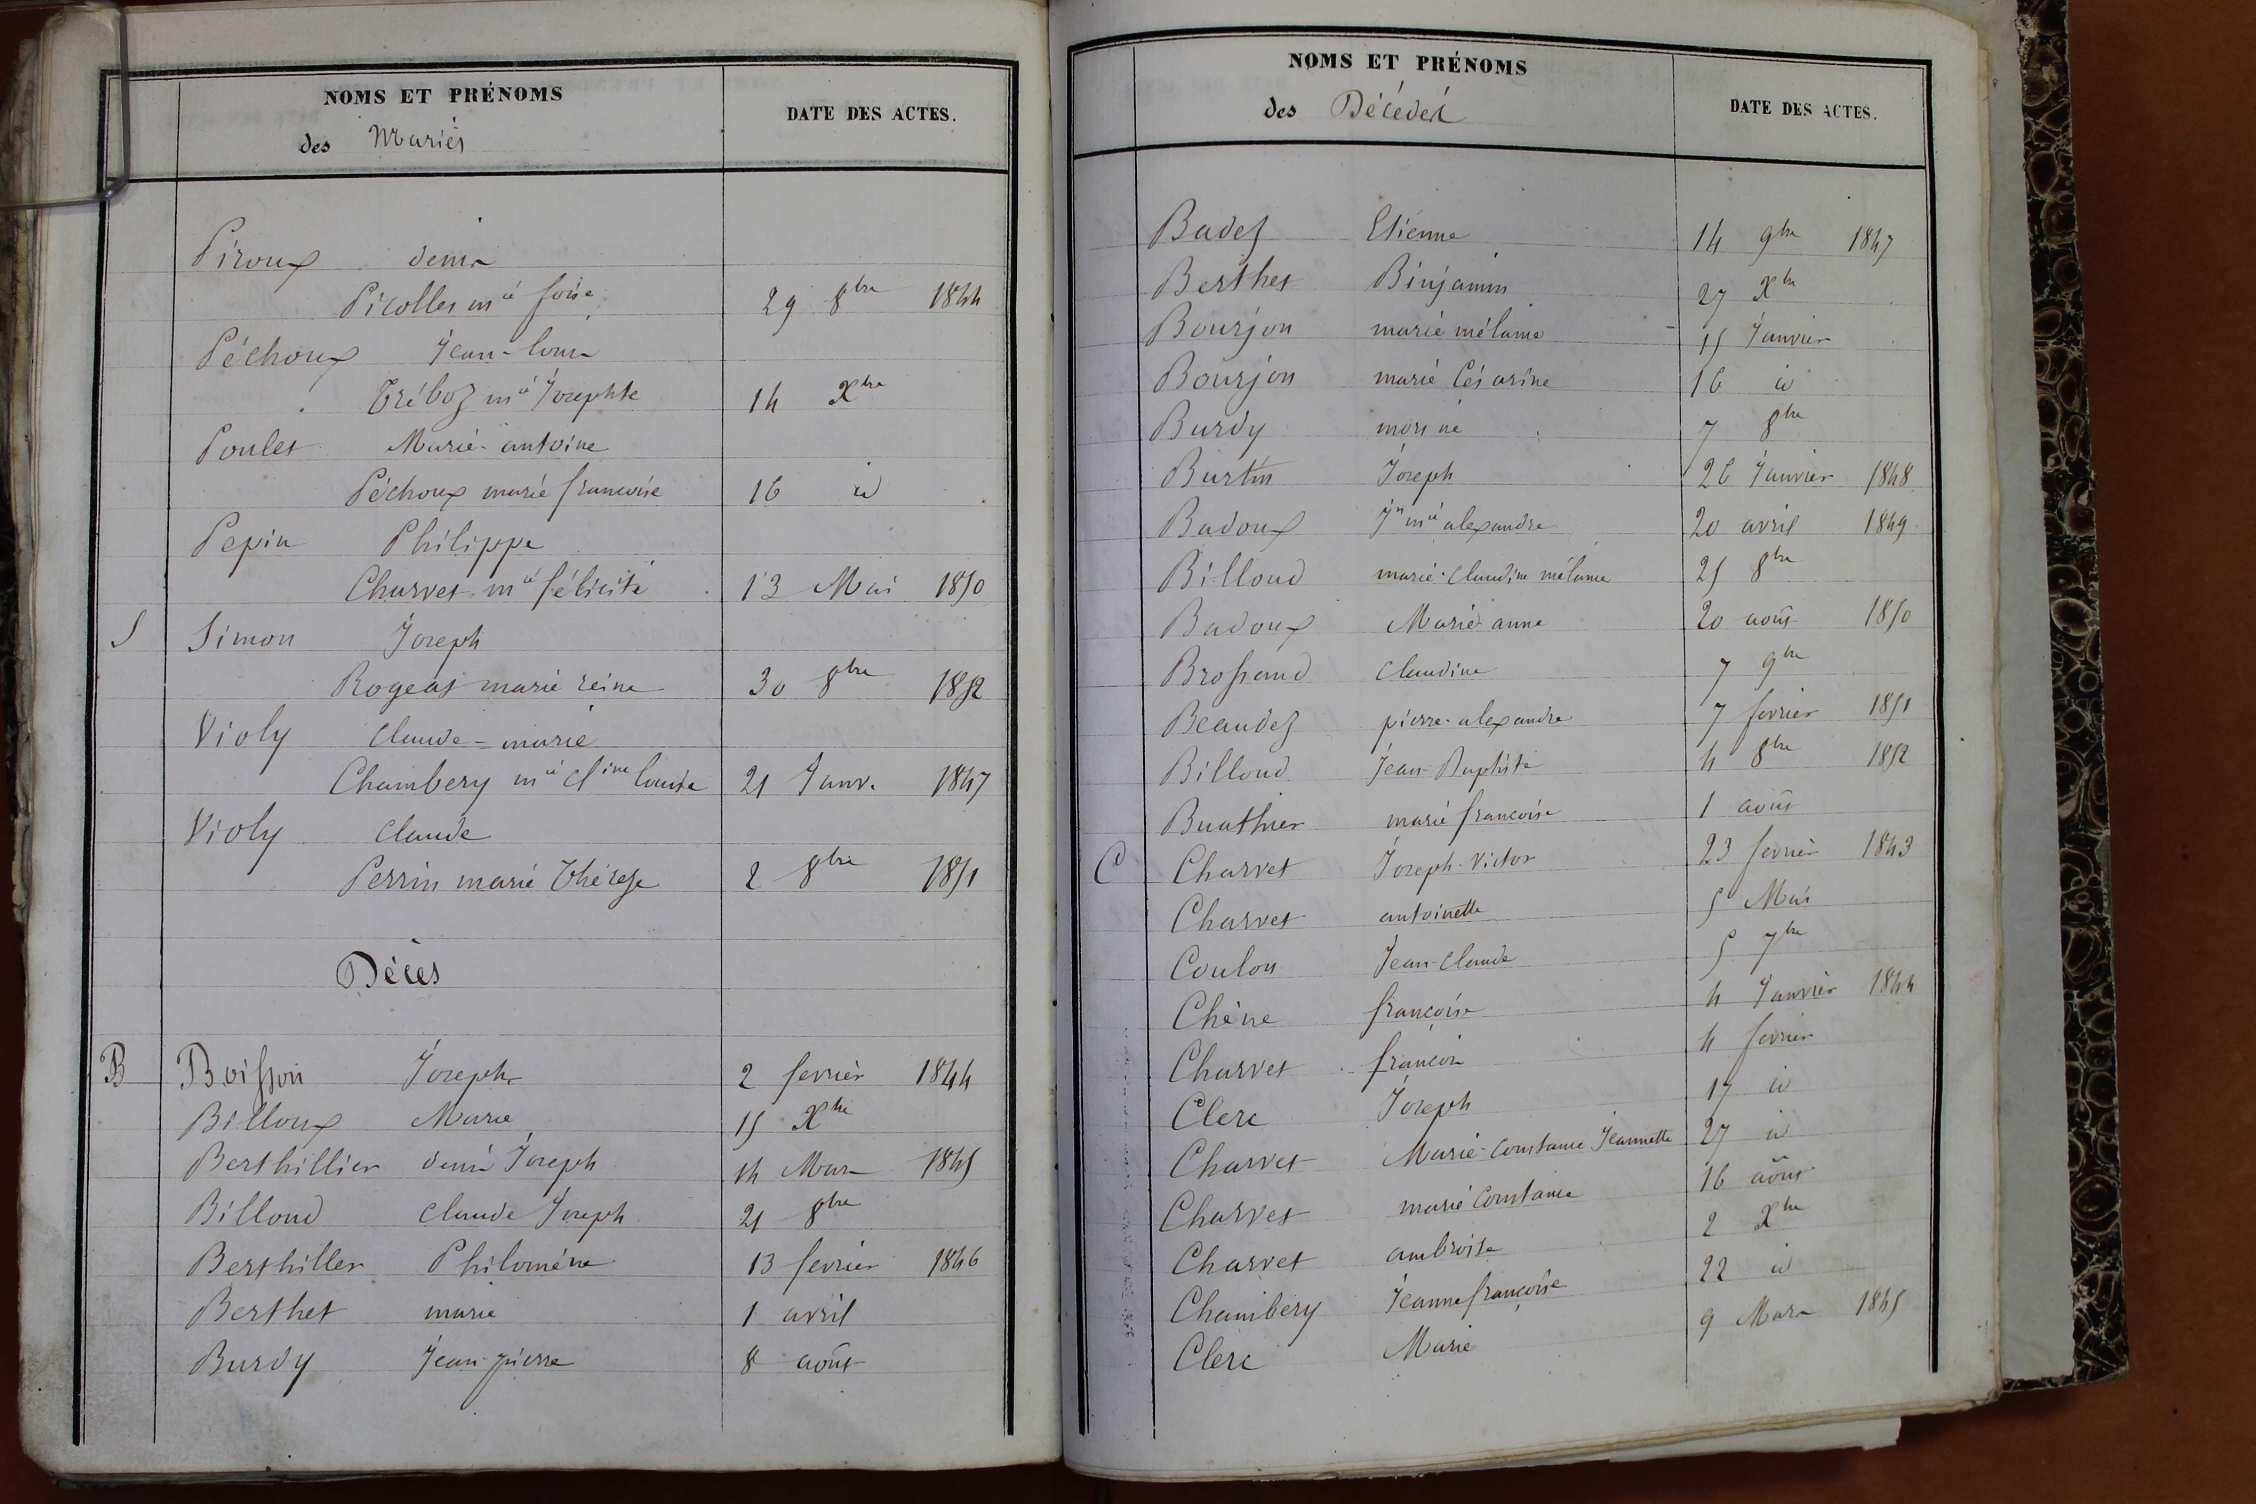 NOMS ET PRÉNOMS
des Mariés
DATE DES ACTES.
Piroux denis
Picollet mie foise 29 8bre 1844
Péchoux Jean-louis
Tréboz mie Josephte 14 Xbre
Poulet Marie-antoine
Péchoux marie francoise 16 id
Pepin Philippe
Charvet mie félicité 13 Mai 1850
S Simon Joseph
Rogeat marie reine 30 8bre 1852
Violy Claude-marie
Chambery mie Cline louise 21 Janv. 1847
Violy Claude
Perrin marie Thérèse 2 8bre 1851
Décès
B Boisson Joseph 2 fevrier 1844
Billoux Marie 15 Xbre
Berthillier denis Joseph 14 Mars 1845
Billoud Claude Joseph 21 8bre
Berthiller Philomène 13 fevrier 1846
Berthet marie 1 avril
Burdy Jean-pierre 8 août
NOMS ET PRÉNOMS
des Décédés
DATE DES ACTES.
Badez Etienne 14 9bre 1847
Berthet Binjamin 27 Xbre
Bourjon marie mélanie 15 Janvier
Bourjon marie Césarine 16 id
Burdy 7 8bre
Burtin Joseph 26 Janvier 1848
Badoux Jn mie alexandre 20 avril 1849
Billoud marie-Claudine mélanie 25 8bre
Badoux Marie-anne 20 août 1850
Brossand Claudine 7 9bre
Beaudez pierre-alexandre 7 fevrier 1851
Billoud Jean-Baptiste 4 8bre 1852
Buathier marie francoise 1 août
C Charvet Joseph-Victor 23 fevrier 1843
Charvet antoinette 5 Mai
Coulon Jean-Claude 5 7bre
Chêne françoise 4 Janvier 1844
Charvet françois 4 fevrier
Clerc Joseph 17 id
Charvet Marie-Constance Jeannette 27 id
Charvet marie Constance 16 août
Charvet ambroise 2 Xbre
Chambery Jeanne françoise 22 id
Clerc Marie 9 Mars 1845